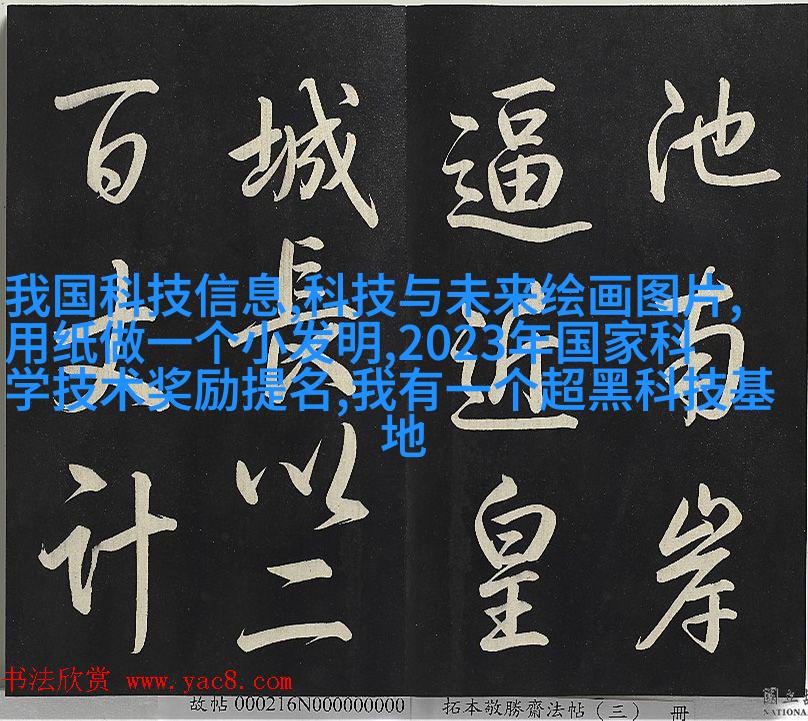 池南岸
逼近皇
城長以二
百丈計
我国科技信息,科技与未来绘画图片,
用纸做一个小发明,2023年国家科
学技术奖励提名,我有一个超黑科技基
地
书法欣赏 www.yac8.com
故帖 000216N000000000 拓本敬勝齋法帖（三） 冊
國立
NATIONA